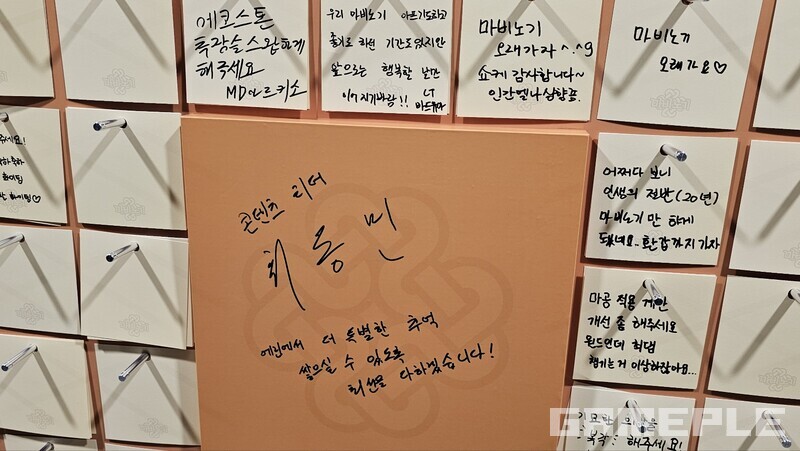 에코스톤
특강슬스왑하게
해주세요
MD아르키소
우리 마비노기 아프기도하고
좋기도 하던 기간도있지만
앞으로는 행복할 날만
이어지기바랑!! LT
마비노기
오래가자 ^.^9
쇼케 감사합니다~
인간멜나상향좀.
마비노기
오래가요♡
주세요!
화이팅
화이팅♡
어쩌다 보니
인생의 절반(20년)
마비노기만 하게
됐네요.. 환갑까지 가자
콘텐츠 리더
최동민
에린에서 더 특별한 추억
쌓으실 수 있도록
최선을 다하겠습니다!
마공 적용 계산
개선 좀 해주세요
윈드인데 최댐
챙기는거 이상하잖아요...
해주세요!
GAMEPLE